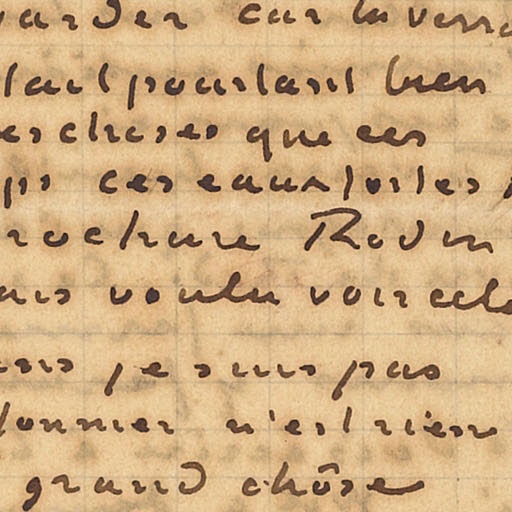 garder car tu verra
fait pourtant bien
es choses que ces
ps ces eaux fortes
rochure Rodin
ais voulu voir cela
ens je suis pas
donner n'est rien
grand chôse